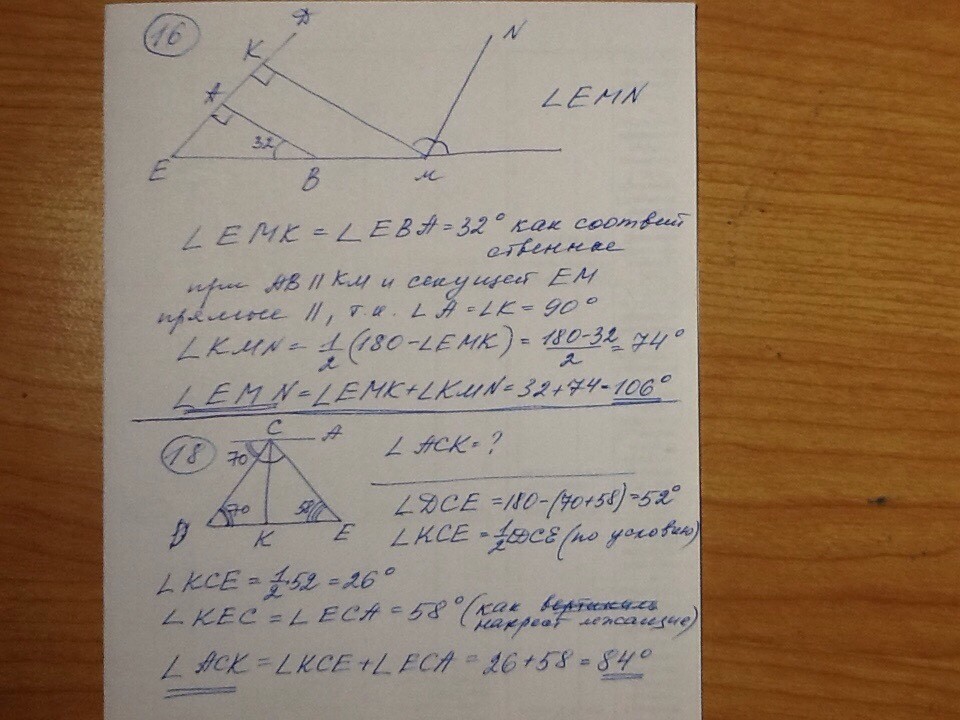 16
D
K
N
A
∠EMN
32
E
B
M
∠EMK = ∠EBA = 32° как соответ
ственные
при AB || KM и секущей EM
прямые ||, т.к. ∠A = ∠K = 90°
∠KMN = 1/2 (180 - ∠EMK) = (180-32)/2 = 74°
∠EMN = ∠EMK + ∠KMN = 32 + 74 = 106°
18
C
A
70
∠ACK = ?
70
58
D
K
E
∠DCE = 180 - (70 + 58) = 52°
∠KCE = 1/2 DCE (по условию)
∠KCE = 1/2 · 52 = 26°
∠KEC = ∠ECA = 58° (как вертикаль
накрест лежащие)
∠ACK = ∠KCE + ∠ECA = 26 + 58 = 84°